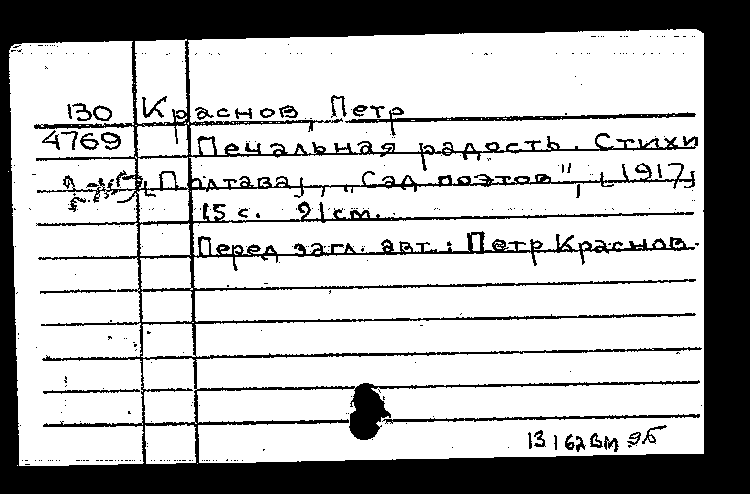 130 Краснов, Петр
4769 Печальная радость. Стихи
[Полтава], „Сад поэтов", [1917]
15 с. 21 см.
Перед загл. авт.: Петр Краснов.
13 | 62 ВМ ЭБ